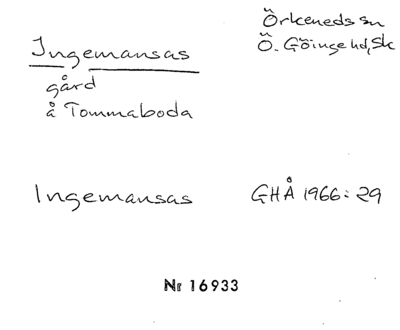 Örkeneds sn
Ingemansas Ö. Göinge hd, Sk
gård
å Tommaboda
Ingemansas GHÅ 1966: 29
Nr 16933